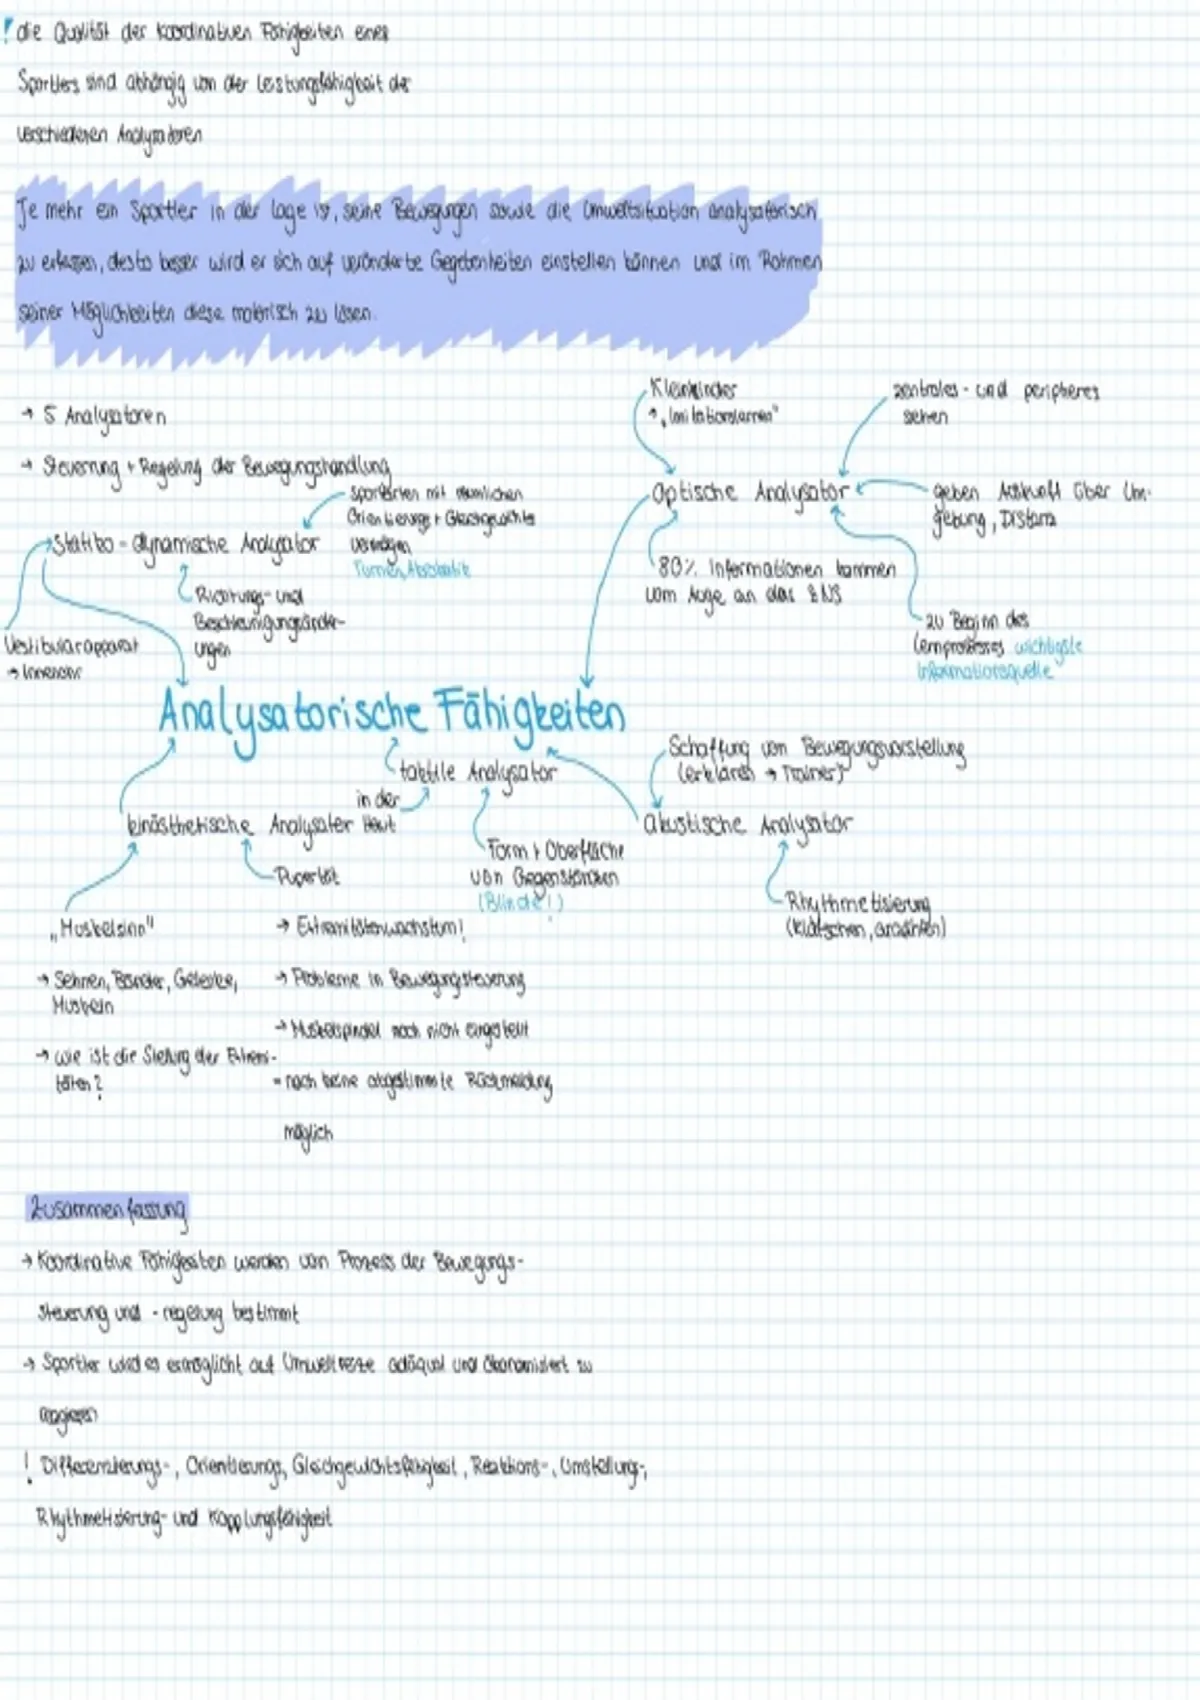 ! die Qualität der koordinativen Fähigkeiten eines
Sportlers sind abhängig von der Leistungsfähigkeit der
verschiedenen Analysatoren
Je mehr ein Sportler in der Lage ist, seine Bewegungen sowie die Umweltsituation analysatorisch
zu erfassen, desto besser wird er sich auf veränderte Gegebenheiten einstellen können und im Rahmen
seiner Möglichkeiten diese motorisch zu lösen.
→ 5 Analysatoren
→ Steuerung + Regelung der Bewegungshandlung
Kleinkinder
→ „Imitationslernen"
zentrales- und peripheres
sehen
optische Analysator
geben Auskunft über Um-
gebung, Distanz
80% Informationen kommen
vom Auge an das ZNS
zu Beginn des
Lernprozesses wichtigste
Informationsquelle
Sportarten mit räumlichen
Orientierungs + Gleichgewichts
vermögen
Turnen, Akrobatik
Statiko-dynamische Analysator
Richtungs- und
Beschleunigungsänder-
ungen
Vestibularapparat
→ Innenohr
Analysatorische Fähigkeiten
taktile Analysator
in der
Haut
Form + Oberfläche
von Gegenständen
(Blinde!)
Schaffung von Bewegungsvorstellung
(erklären → Trainer)
akustische Analysator
Rhythmetisierung
(klatschen, anzählen)
kinästhetische Analysator
Pupertät
„Muskelsinn"
→ Sehnen, Bänder, Gelenke,
Muskeln
→ wie ist die Stellung der Extremi-
täten?
→ Extremitätenwachstum!
→ Probleme in Bewegungsteuerung
→ Muskelspindel noch nicht eingestellt
= noch keine abgestimmte Rückmeldung
möglich
Zusammenfassung
→ Koordinative Fähigkeiten werden von Prozess der Bewegungs-
steuerung und -regelung bestimmt
→ Sportler wird es ermöglicht auf Umweltreize adäquat und ökonomisiert zu
reagieren
! Differenzierungs-, Orientierungs, Gleichgewichtsfähigkeit, Reaktions-, Umstellungs-,
Rhythmetisierung- und Kopplungsfähigkeit